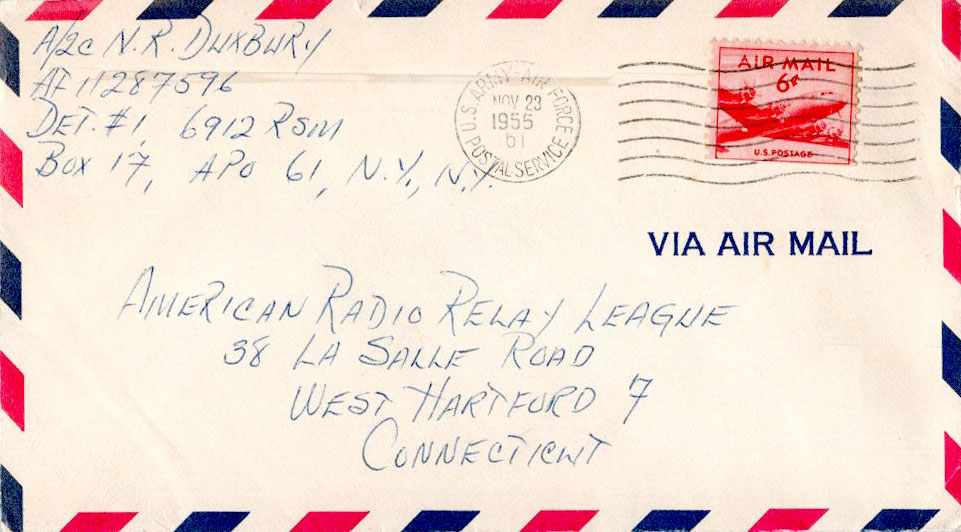 A/2c N.R. DUXBURY
AF 11287596
DET. #1, 6912 RSM
BOX 17, APO 61, N.Y., N.Y.
U.S. ARMY-AIR FORCE
NOV 23
1955
61
POSTAL SERVICE
AIR MAIL
6¢
U.S. POSTAGE
VIA AIR MAIL
AMERICAN RADIO RELAY LEAGUE
38 LA SALLE ROAD
WEST HARTFORD 7
CONNECTICUT